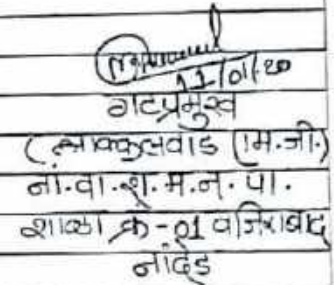 11/01/20
गटप्रमुख
(लाककुलवाड (म.जी.)
नां.वा.श.म.न.पा.
शाळा क्र-01 वजिराबाद
नांदेड